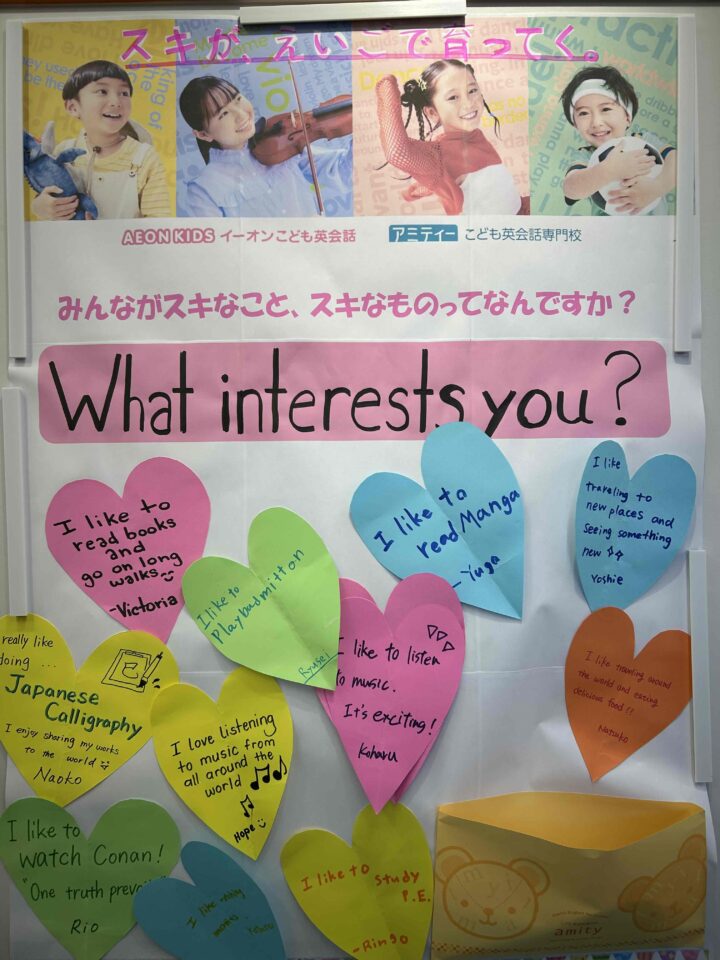 スキが、えいごで育ってく。
AEON KIDS イーオンこども英会話
アミティー こども英会話専門校
みんながスキなこと、スキなものってなんですか？
What interests you?
I like to
read books
and
go on long
walks
-Victoria
I like to
Play badmitton
Ryusei
I like to
read Manga
- Yuga
I like
traveling to
new places and
seeing something
new
Yoshie
really like
doing ...
Japanese
Calligraphy
I enjoy sharing my works
to the world
Naoko
I love listening
to music from
all around the
world
Hope
I like to listen
to music.
It's exciting!
Koharu
I like traveling around
the world and eating
delicious food!!
Natsuko
I like to
watch Conan!
"One truth
Rio
I like
I like to study
P.E.
-Ringo
amity